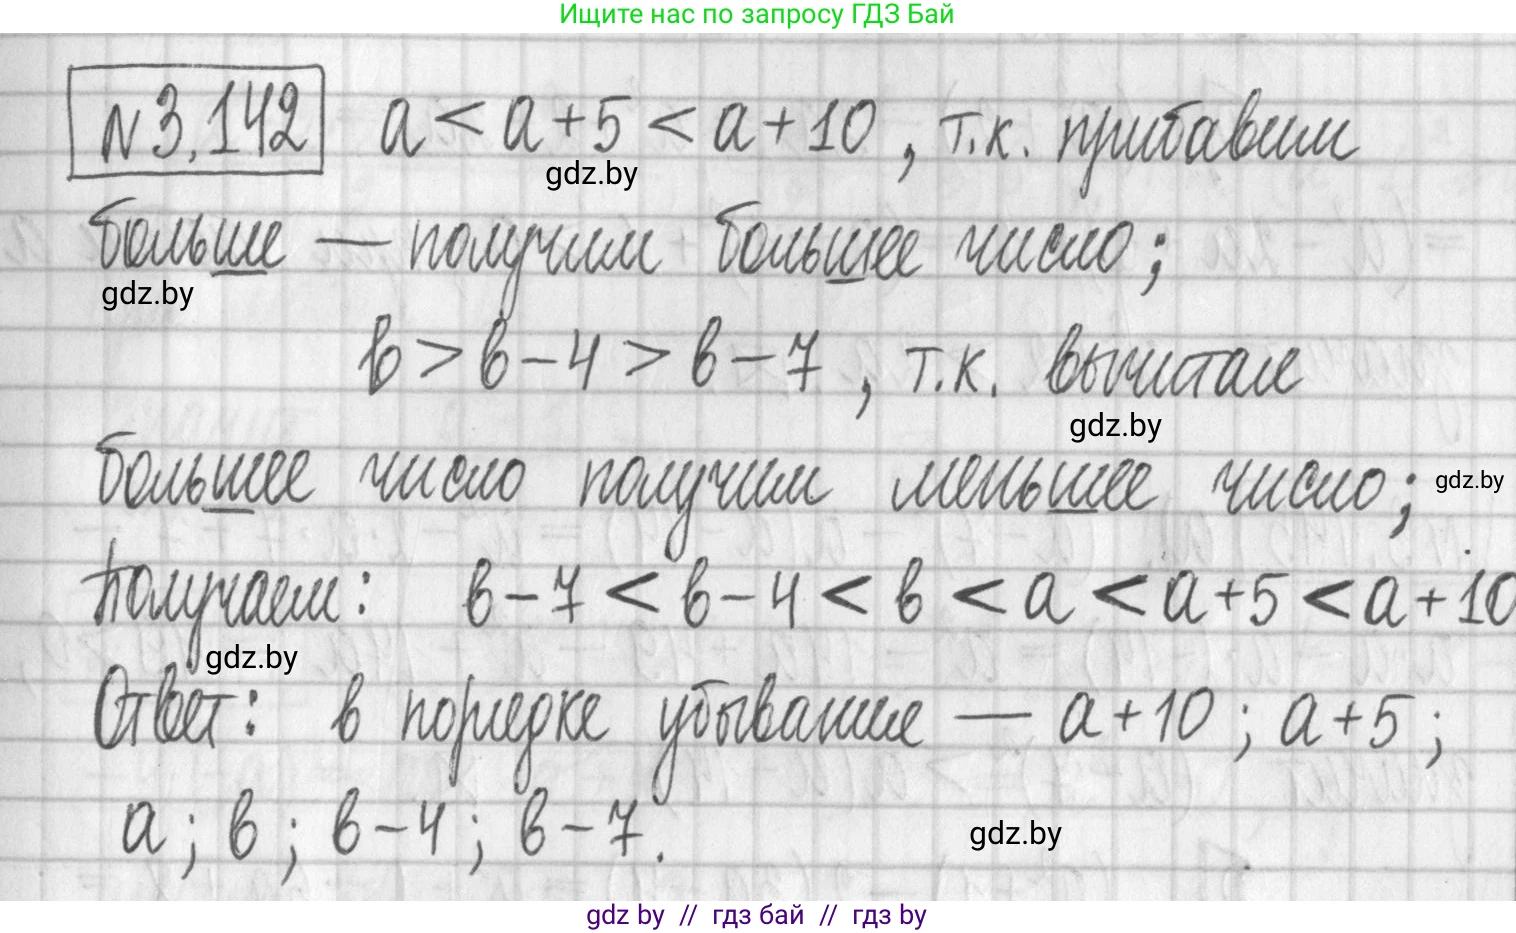 Ищите нас по запросу ГДЗ Бай
№3.142 a < a+5 < a+10, т.к. прибавим
gdz.by
больше — получим большее число;
gdz.by
в > в-4 > в-7, т.к. вычитая
gdz.by
большее число получим меньшее число;
gdz.by
Получаем: в-7 < в-4 < в < a < a+5 < a+10
gdz.by
Ответ: в порядке убывания — a+10; a+5;
a; в; в-4; в-7.
gdz.by
gdz by // гдз бай // гдз by